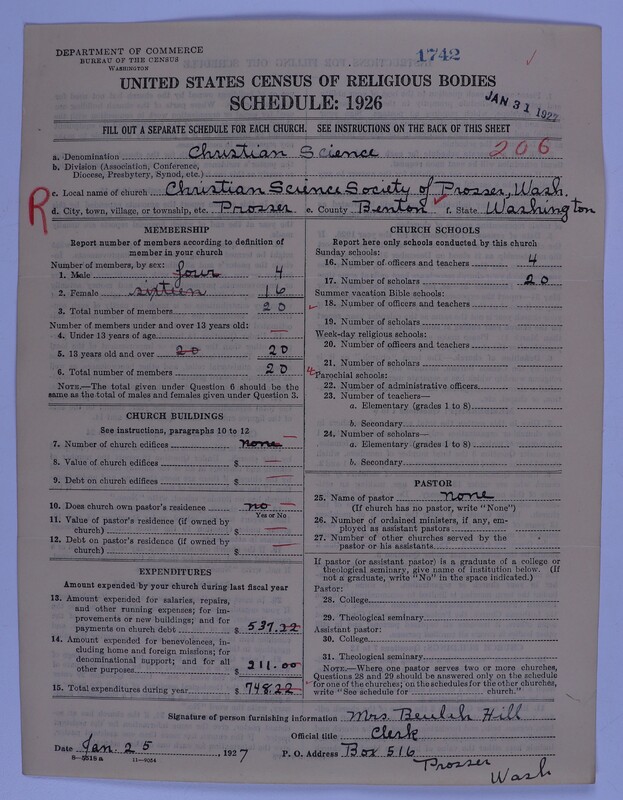 DEPARTMENT OF COMMERCE
BUREAU OF THE CENSUS
WASHINGTON
1742
UNITED STATES CENSUS OF RELIGIOUS BODIES
SCHEDULE: 1926
JAN 31 1927
FILL OUT A SEPARATE SCHEDULE FOR EACH CHURCH. SEE INSTRUCTIONS ON THE BACK OF THIS SHEET
206
a. Denomination Christian Science
b. Division (Association, Conference, Diocese, Presbytery, Synod, etc.)
R
c. Local name of church Christian Science Society of Prosser, Wash.
d. City, town, village, or township, etc. Prosser e. County Benton f. State Washington
MEMBERSHIP
Report number of members according to definition of member in your church
Number of members, by sex:
1. Male four 4
2. Female sixteen 16
3. Total number of members 20
Number of members under and over 13 years old:
4. Under 13 years of age
5. 13 years old and over 20 20
6. Total number of members 20
NOTE.—The total given under Question 6 should be the same as the total of males and females given under Question 3.
CHURCH BUILDINGS
See instructions, paragraphs 10 to 12
7. Number of church edifices none
8. Value of church edifices $
9. Debt on church edifices $
10. Does church own pastor's residence? no
Yes or No
11. Value of pastor's residence (if owned by church) $
12. Debt on pastor's residence (if owned by church) $
EXPENDITURES
Amount expended by your church during last fiscal year
13. Amount expended for salaries, repairs, and other running expenses; for improvements or new buildings; and for payments on church debt $ 537.22
14. Amount expended for benevolences, including home and foreign missions; for denominational support; and for all other purposes $ 211.00
15. Total expenditures during year $ 748.22
CHURCH SCHOOLS
Report here only schools conducted by this church
Sunday schools:
16. Number of officers and teachers 4
17. Number of scholars 20
Summer vacation Bible schools:
18. Number of officers and teachers
19. Number of scholars
Week-day religious schools:
20. Number of officers and teachers
21. Number of scholars
Parochial schools:
22. Number of administrative officers
23. Number of teachers—
a. Elementary (grades 1 to 8)
b. Secondary
24. Number of scholars—
a. Elementary (grades 1 to 8)
b. Secondary
PASTOR
25. Name of pastor none
(If church has no pastor, write "None")
26. Number of ordained ministers, if any, employed as assistant pastors
27. Number of other churches served by the pastor or his assistants
If pastor (or assistant pastor) is a graduate of a college or theological seminary, give name of institution below. (If not a graduate, write "No" in the space indicated.)
Pastor:
28. College
29. Theological seminary
Assistant pastor:
30. College
31. Theological seminary
NOTE.—Where one pastor serves two or more churches, Questions 28 and 29 should be answered only on the schedule for one of the churches; on the schedules for the other churches, write "See schedule for church."
Signature of person furnishing information Mrs. Beulah Hill
Official title Clerk
Date Jan. 25, 1927 P. O. Address Box 516
8-5518 a 11-9054
Prosser
Wash